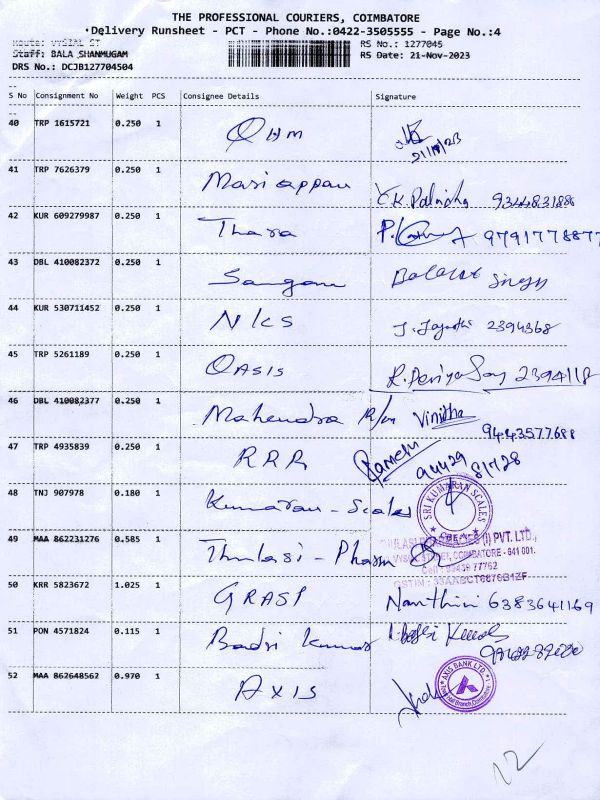 THE PROFESSIONAL COURIERS, COIMBATORE
Delivery Runsheet - PCT - Phone No.:0422-3505555 - Page No.:4
Route: VYSIAL ST RS No.: 1277045
Staff: BALA SHANMUGAM RS Date: 21-Nov-2023
DRS No.: DCJB127704504
S No Consignment No Weight PCS Consignee Details Signature
40 TRP 1615721 0.250 1 21/11/23
41 TRP 7626379 0.250 1 Mariappan 9344831886
42 KUR 609279987 0.250 1 Thara 9791778877
43 DBL 410082372 0.250 1 Sangam Singh
44 KUR 530711452 0.250 1 NKS J. 2394368
45 TRP 5261189 0.250 1 OASIS 2394118
46 DBL 410082377 0.250 1 Mahendra Vinitha
9443577688
47 TRP 4935839 0.250 1 RRR Ramesh 94429 81728
48 TNJ 907978 0.180 1 Kumaran - Scales SRI KUMARAN SCALES
49 MAA 862231276 0.585 1 Thulasi - Pharm (I) PVT. LTD.,
COIMBATORE - 641 001.
50 KRR 5823672 1.025 1 GRASP Nanthini 6383641169
51 PON 4571824 0.115 1 Badri Kumar
52 MAA 862648562 0.970 1 AXIS AXIS BANK LTD.
12